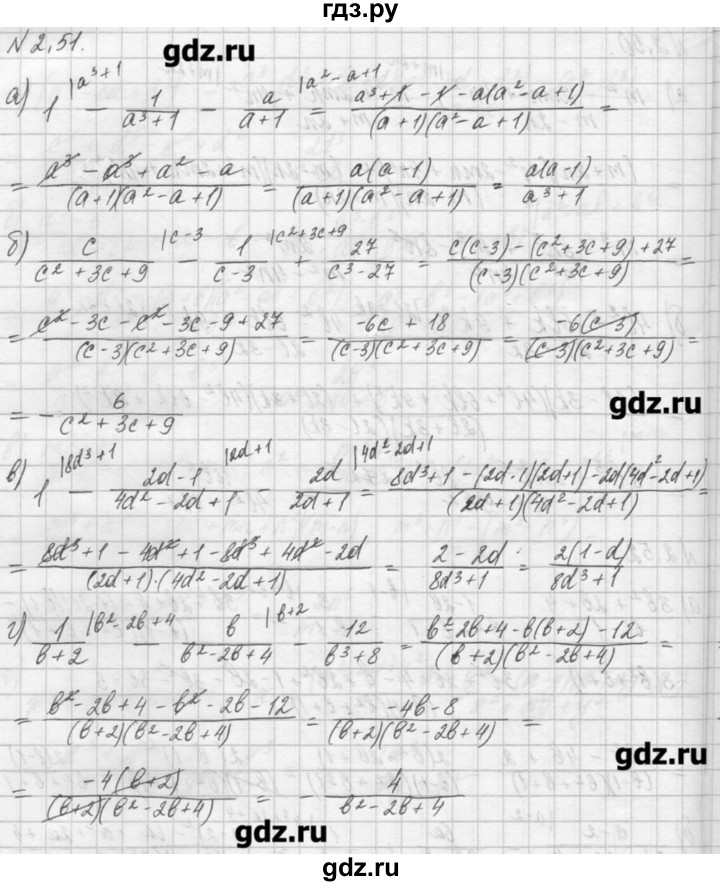 гдз.ру
N 2,51.
gdz.ru
а) 1 |a³+1 − 1/(a³+1) − a/(a+1) |a²−a+1 = (a³+1−1−a(a²−a+1))/((a+1)(a²−a+1)) =
= (a³−a³+a²−a)/((a+1)(a²−a+1)) = a(a−1)/((a+1)(a²−a+1)) = a(a−1)/(a³+1)
б) c/(c²+3c+9) |c−3 − 1/(c−3) |c²+3c+9 + 27/(c³−27) = (c(c−3)−(c²+3c+9)+27)/((c−3)(c²+3c+9)) =
= (c²−3c−c²−3c−9+27)/((c−3)(c²+3c+9)) = (−6c+18)/((c−3)(c²+3c+9)) = −6(c−3)/((c−3)(c²+3c+9)) =
gdz.ru
= − 6/(c²+3c+9)
в) 1 |8d³+1 − (2d−1)/(4d²−2d+1) |2d+1 − 2d/(2d+1) |4d²−2d+1 = (8d³+1−(2d−1)(2d+1)−2d(4d²−2d+1))/((2d+1)(4d²−2d+1)) =
= (8d³+1−4d²+1−8d³+4d²−2d)/((2d+1)·(4d²−2d+1)) = (2−2d)/(8d³+1) = 2(1−d)/(8d³+1)
г) 1/(b+2) |b²−2b+4 − b/(b²−2b+4) |b+2 − 12/(b³+8) = (b²−2b+4−b(b+2)−12)/((b+2)(b²−2b+4)) =
= (b²−2b+4−b²−2b−12)/((b+2)(b²−2b+4)) = (−4b−8)/((b+2)(b²−2b+4)) =
gdz.ru
= −4(b+2)/((b+2)(b²−2b+4)) = − 4/(b²−2b+4)
gdz.ru
gdz.ru